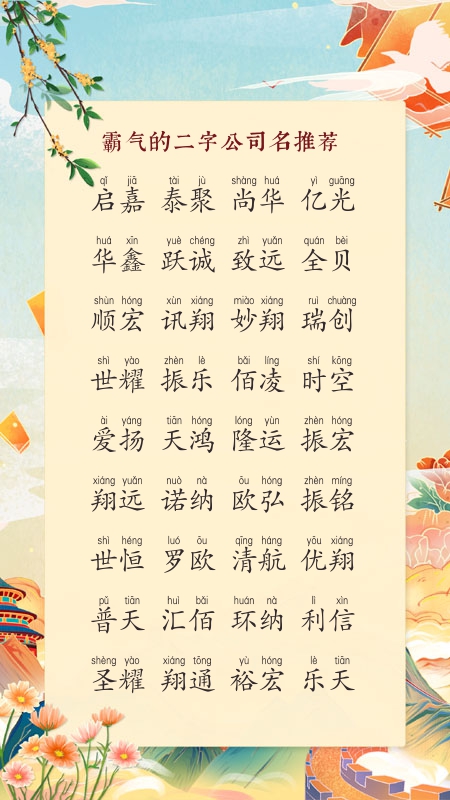 霸气的二字公司名推荐
qǐ jiā tài jù shàng huá yì guāng
启嘉 泰聚 尚华 亿光
huá xīn yuè chéng zhì yuǎn quán bèi
华鑫 跃诚 致远 全贝
shùn hóng xùn xiáng miào xiáng ruì chuàng
顺宏 讯翔 妙翔 瑞创
shì yào zhèn lè bǎi líng shí kōng
世耀 振乐 佰凌 时空
ài yáng tiān hóng lóng yùn zhèn hóng
爱扬 天鸿 隆运 振宏
xiáng yuǎn nuò nà ōu hóng zhèn míng
翔远 诺纳 欧弘 振铭
shì héng luó ōu qīng háng yōu xiáng
世恒 罗欧 清航 优翔
pǔ tiān huì bǎi huán nà lì xìn
普天 汇佰 环纳 利信
shèng yào xiáng tōng yù hóng lè tiān
圣耀 翔通 裕宏 乐天